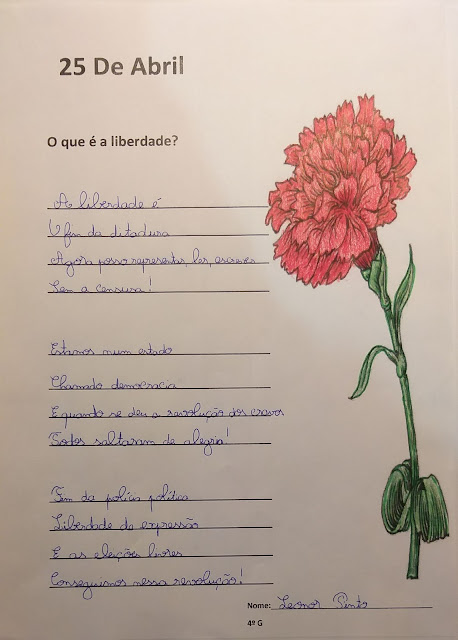 25 De Abril
O que é a liberdade?
A liberdade é
O fim da ditadura
Agora posso representar, ler, escrever
Sem a censura!
Estamos num estado
Chamado democracia
E quando se deu a revolução dos cravos
Todos saltaram de alegria!
Fim da polícia política
Liberdade da expressão
E as eleições livres
Conseguimos nessa revolução!
Nome: Leonor Pinto
4º G